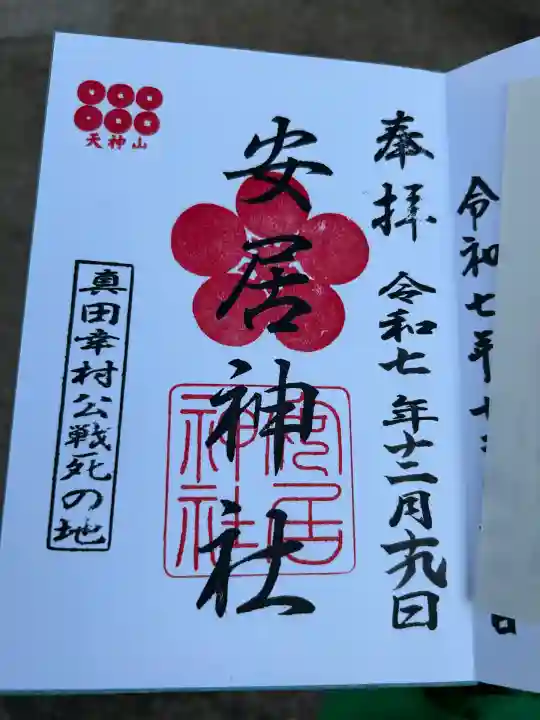 令和七年十
日
奉拝 令和七年十二月十九日
安居神社
安居
神社
天神山
真田幸村公戦死の地